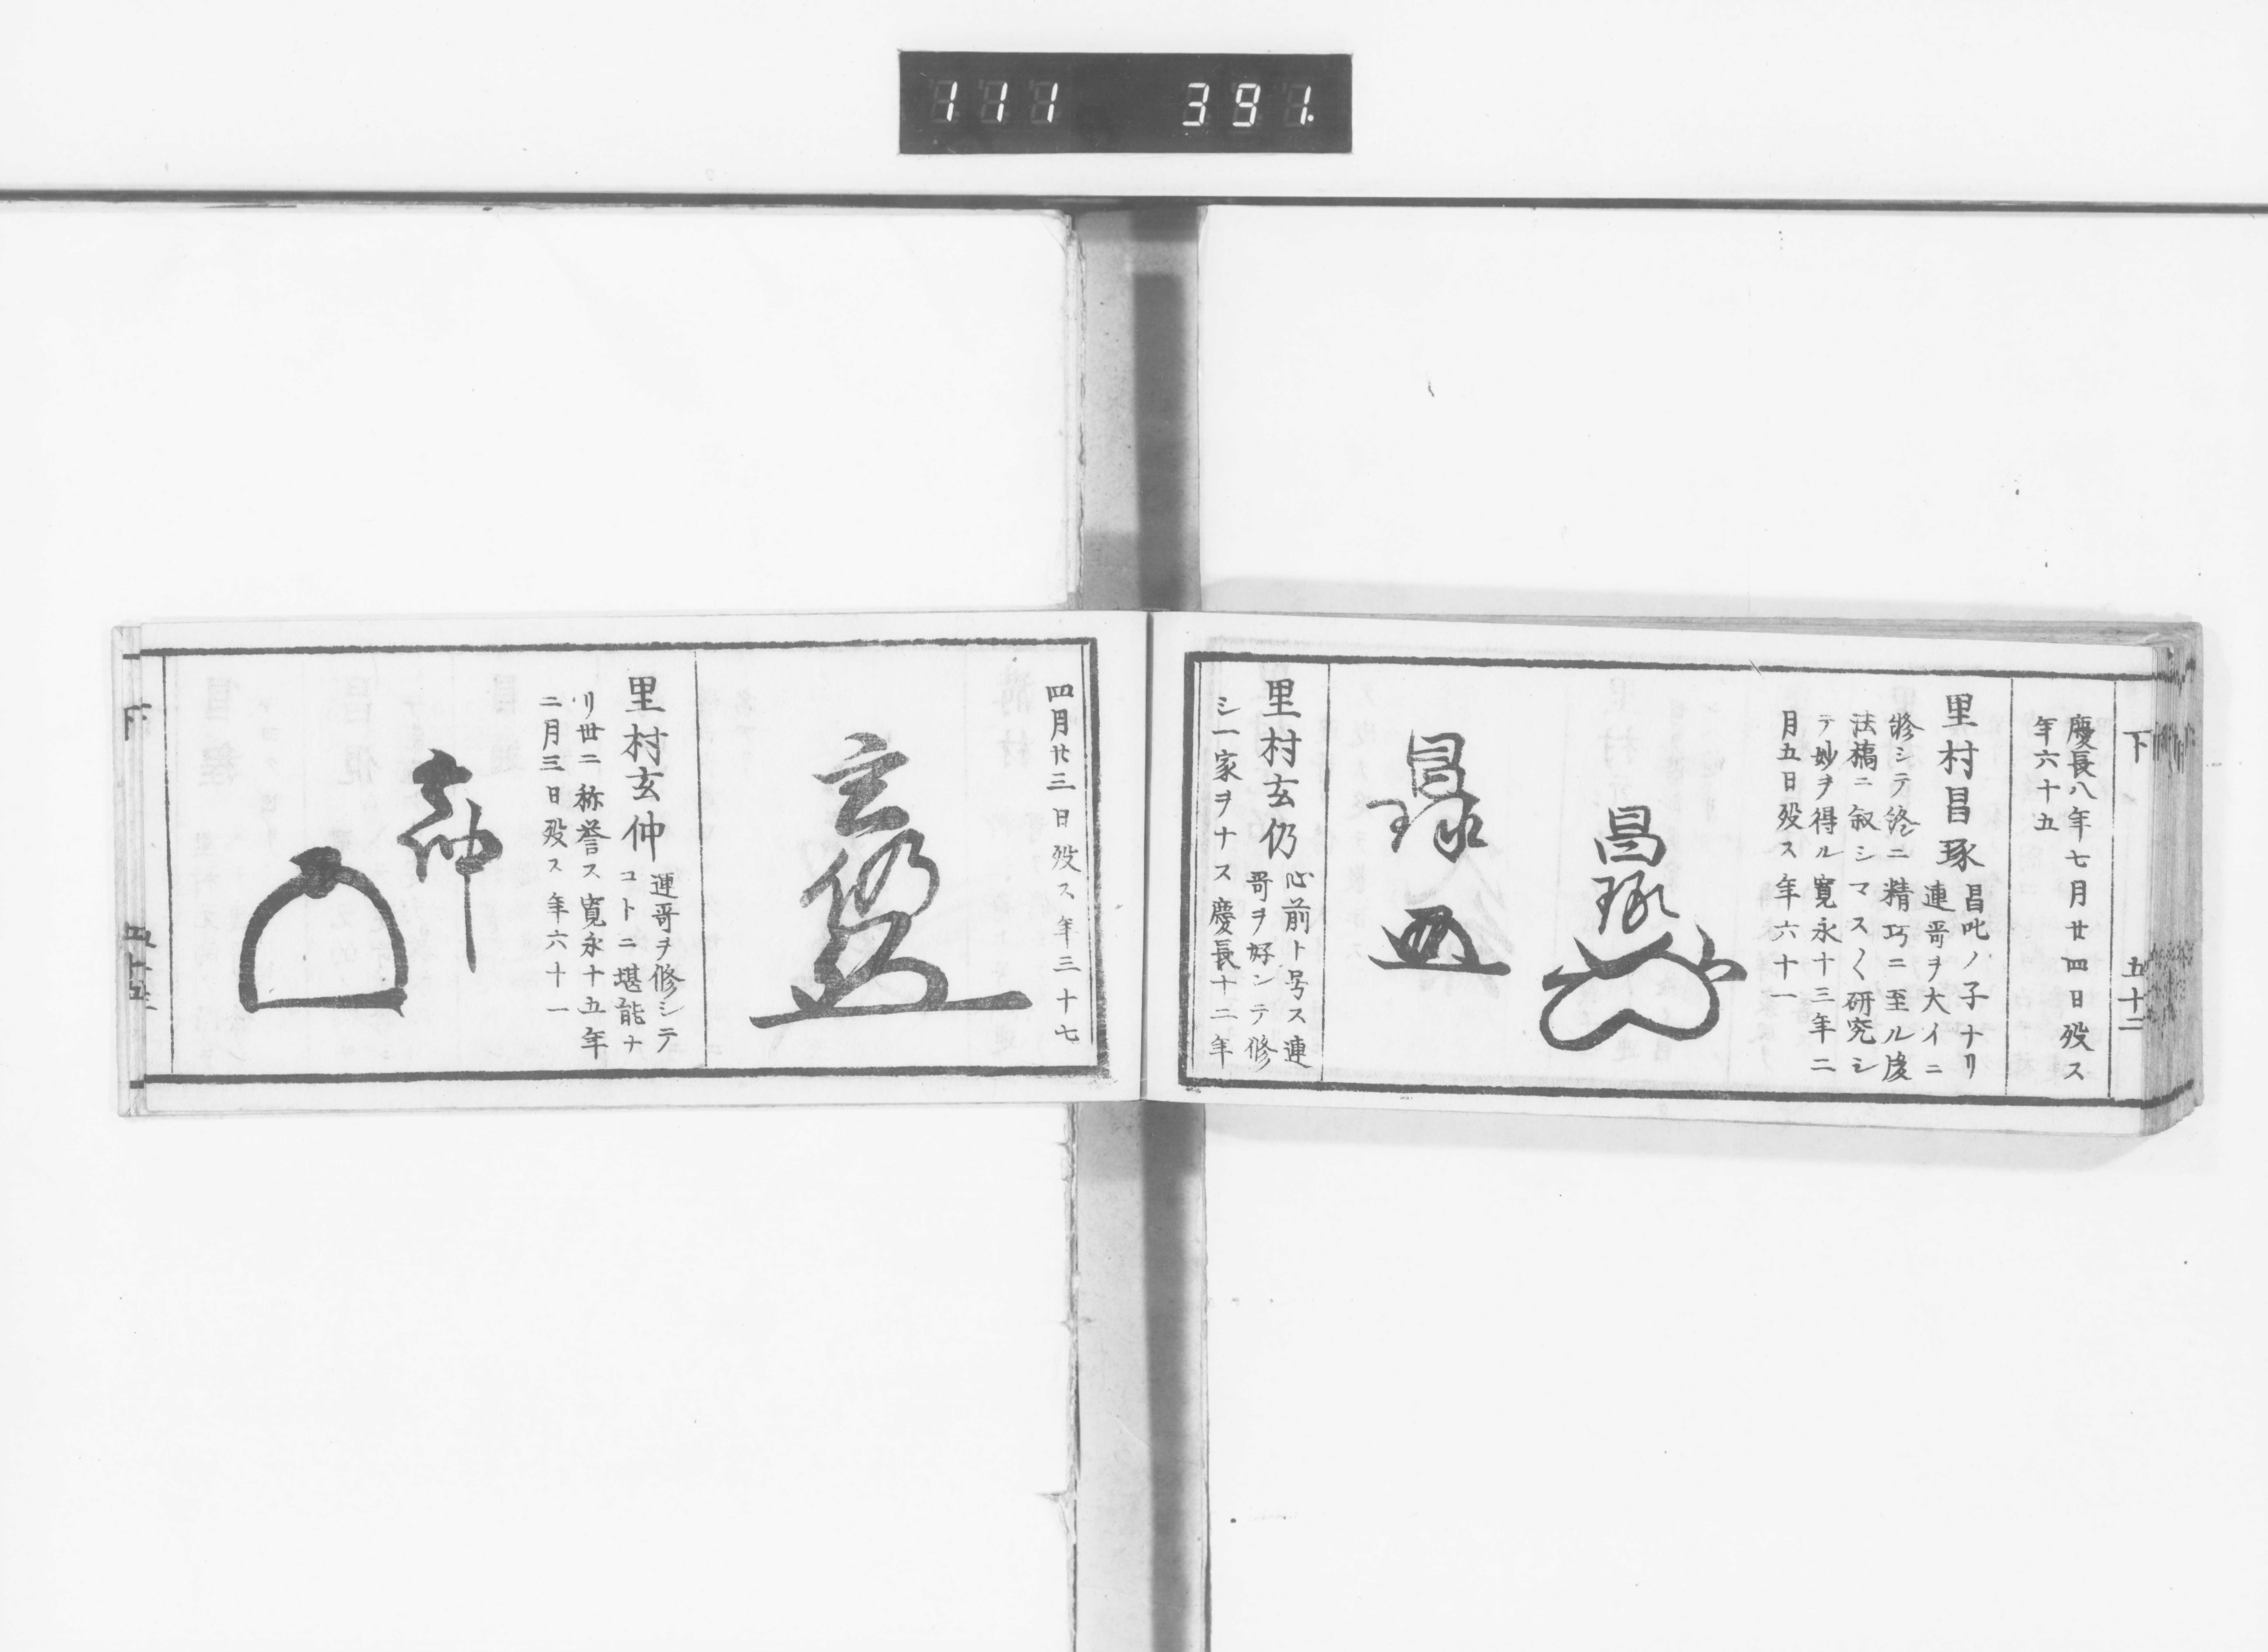 111 391.
下 五十二
慶長八年七月廿四日歿ス
年六十五
里村昌琢 昌叱ノ子ナリ
連哥ヲ大イニ
修シテ終ニ精巧ニ至ル後
法橋ニ叙シマス〱研究シ
テ妙ヲ得ル寛永十三年二
月五日歿ス年六十一
昌琢
昌琢
里村玄仍 心前ト号ス連
哥ヲ好ンテ修
シ一家ヲナス慶長十二年
四月廿三日歿ス年三十七
玄仍
里村玄仲 連哥ヲ修シテ
コトニ堪能ナ
リ世ニ称誉ス寛永十五年
二月三日歿ス年六十一
玄仲
下